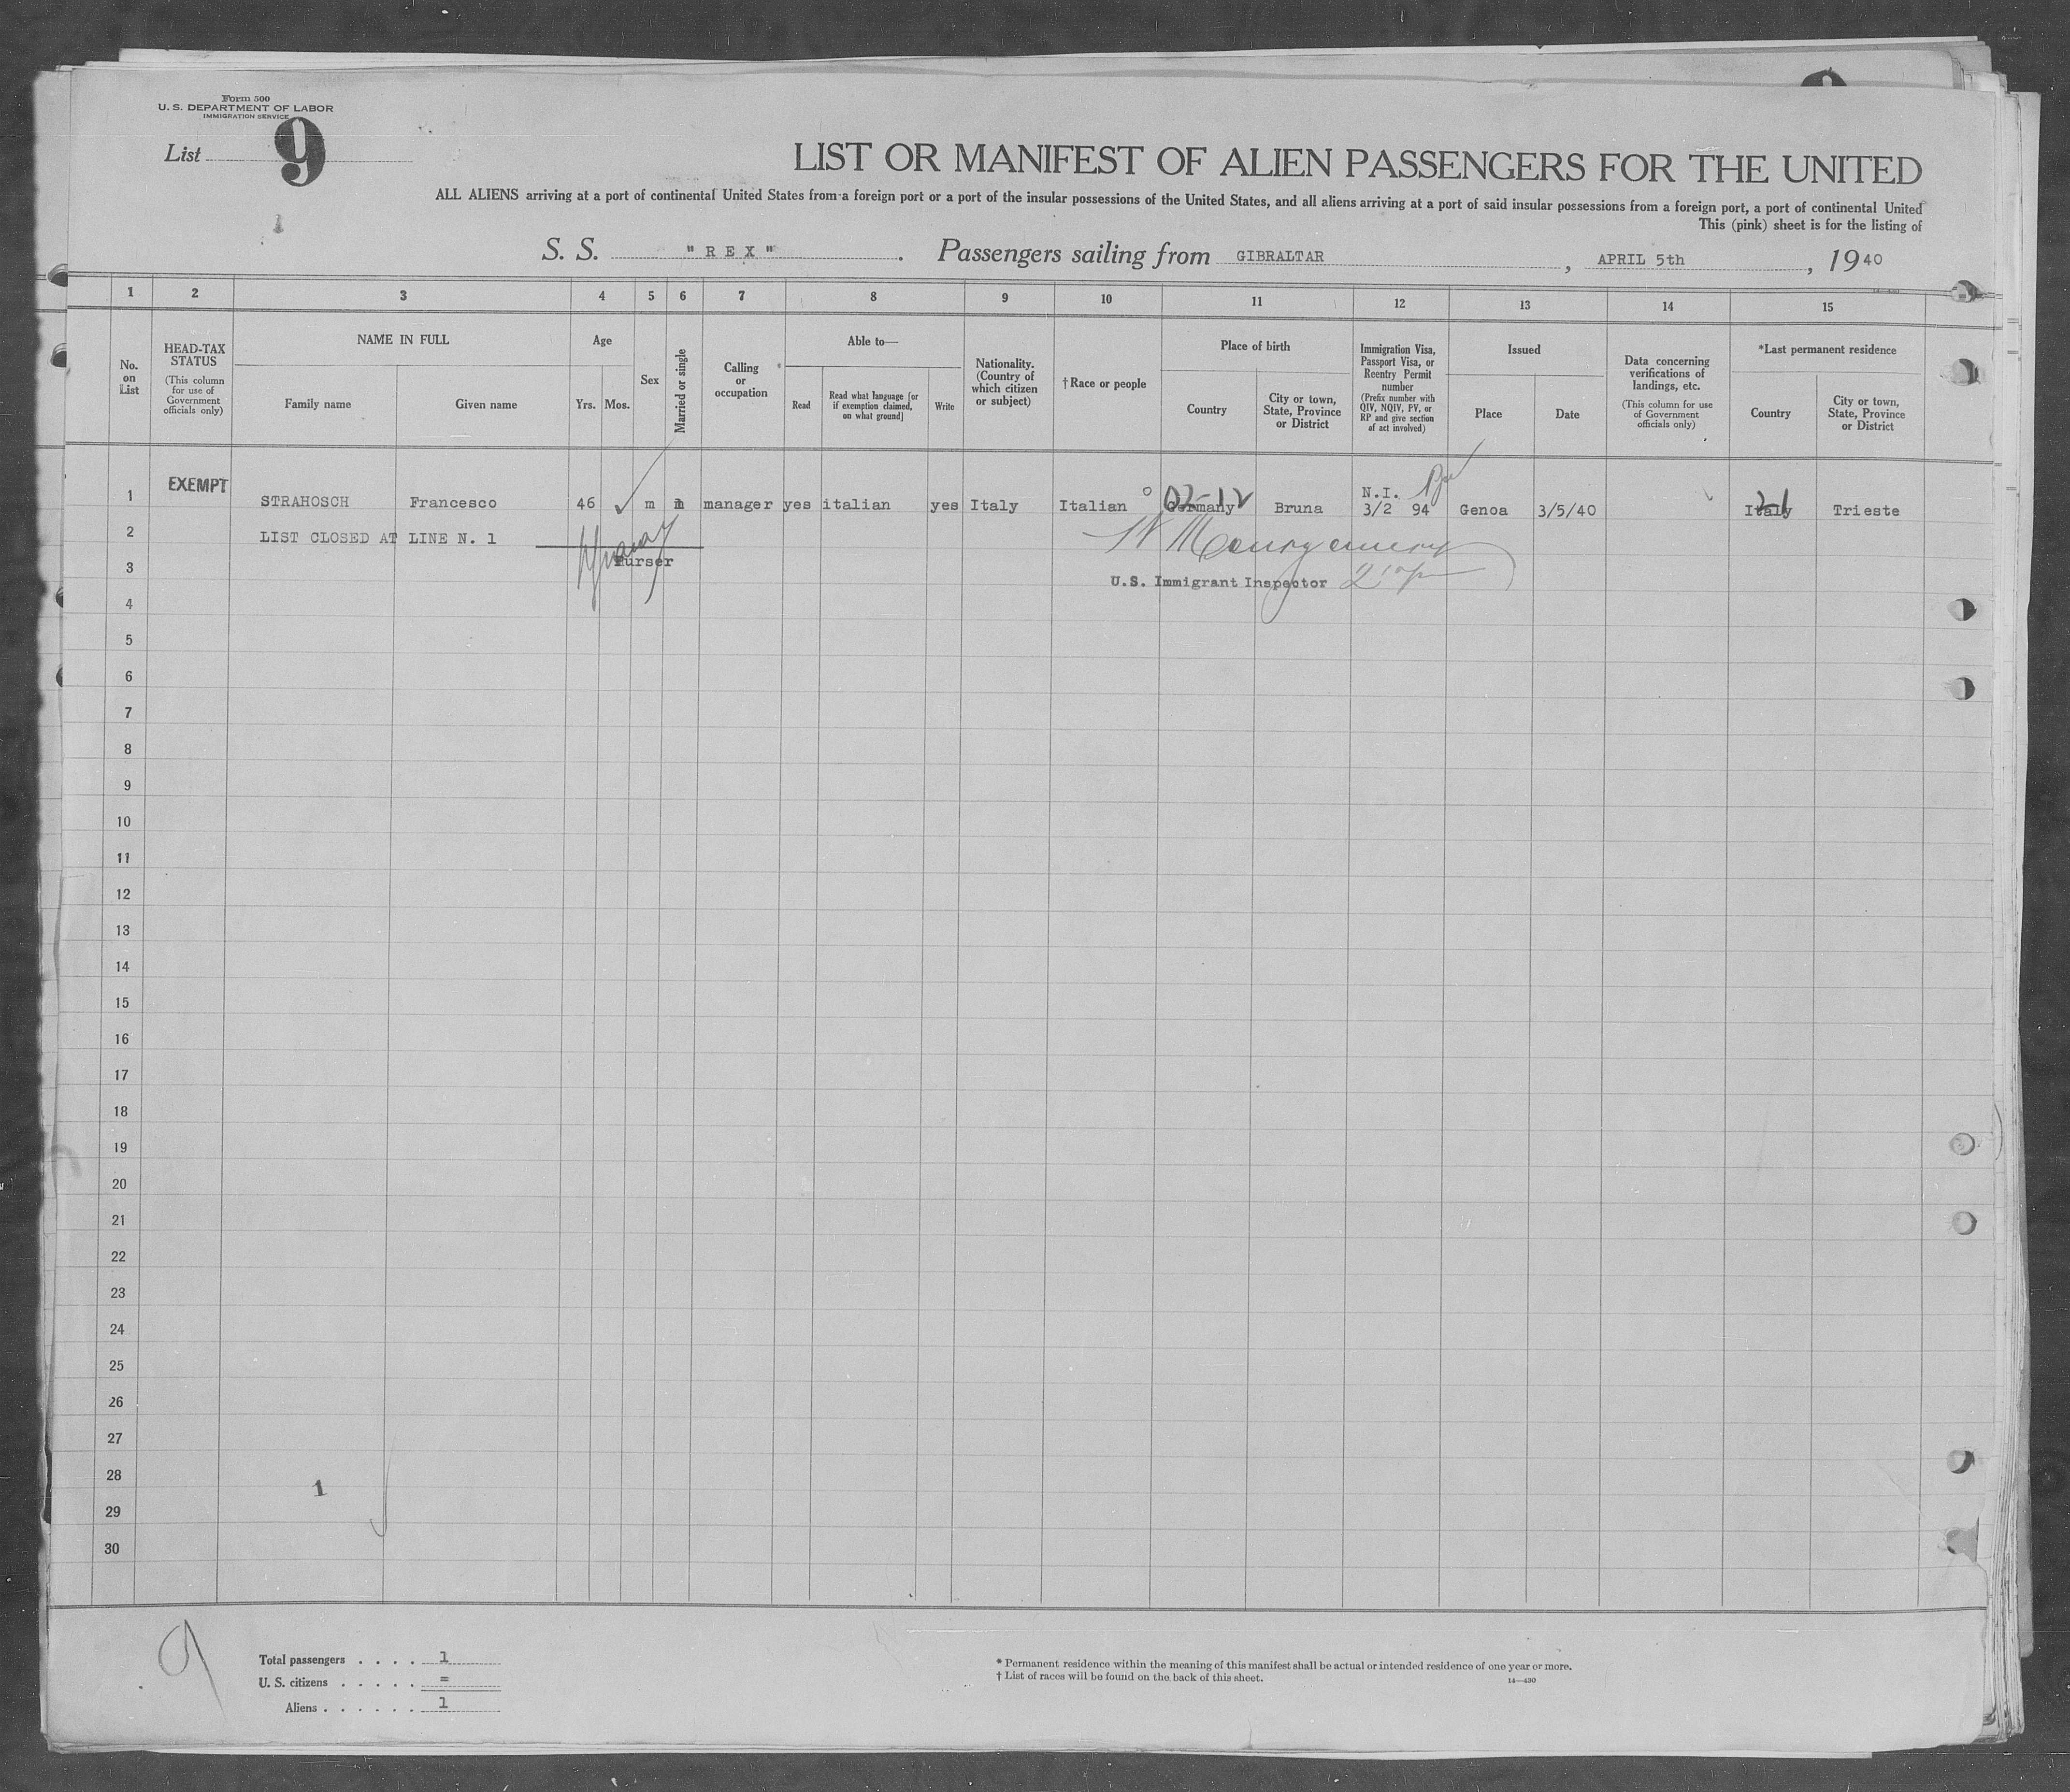 Form 500
U. S. DEPARTMENT OF LABOR
IMMIGRATION SERVICE
List 9
LIST OR MANIFEST OF ALIEN PASSENGERS FOR THE UNITED
ALL ALIENS arriving at a port of continental United States from a foreign port or a port of the insular possessions of the United States, and all aliens arriving at a port of said insular possessions from a foreign port, a port of continental United
This (pink) sheet is for the listing of
S. S. "REX" . Passengers sailing from GIBRALTAR , APRIL 5th , 1940
1 2 3 4 5 6 7 8 9 10 11 12 13 14 15
No. on List
HEAD-TAX STATUS
(This column for use of Government officials only)
NAME IN FULL
Family name
Given name
Age
Yrs.
Mos.
Sex
Married or single
Calling or occupation
Able to—
Read
Read what language [or if exemption claimed, on what ground]
Write
Nationality. (Country of which citizen or subject)
†Race or people
Place of birth
Country
City or town, State, Province or District
Immigration Visa, Passport Visa, or Reentry Permit number
(Prefix number with QIV, NQIV, PV, or RP and give section of act involved)
Issued
Place
Date
Data concerning verifications of landings, etc.
(This column for use of Government officials only)
*Last permanent residence
Country
City or town, State, Province or District
1 EXEMPT STRAHOSCH Francesco 46 m m manager yes italian yes Italy Italian Germany 02-12 Bruna N.I. 3/2 94 Genoa 3/5/40 Italy Trieste
2 LIST CLOSED AT LINE N. 1
W Montgomery
3 Purser
U.S. Immigrant Inspector
4
5
6
7
8
9
10
11
12
13
14
15
16
17
18
19
20
21
22
23
24
25
26
27
28
1
29
30
9
Total passengers . . . . 1
U. S. citizens . . . . . =
Aliens . . . . . . 1
* Permanent residence within the meaning of this manifest shall be actual or intended residence of one year or more.
† List of races will be found on the back of this sheet.
14—430